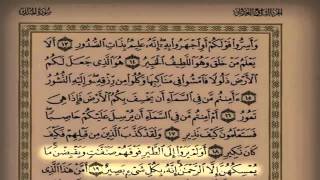 وَأَسِرُّوا۟ قَوْلَكُمْ أَوِ ٱجْهَرُوا۟ بِهِۦٓ إِنَّهُۥ عَلِيمٌۢ بِذَاتِ ٱلصُّدُورِ ١٣ أَلَا
يَعْلَمُ مَنْ خَلَقَ وَهُوَ ٱللَّطِيفُ ٱلْخَبِيرُ ١٤ هُوَ ٱلَّذِى جَعَلَ لَكُمُ
ٱلْأَرْضَ ذَلُولًا فَٱمْشُوا۟ فِى مَنَاكِبِهَا وَكُلُوا۟ مِن رِّزْقِهِۦ وَإِلَيْهِ ٱلنُّشُورُ
١٥ ءَأَمِنتُم مَّن فِى ٱلسَّمَآءِ أَن يَخْسِفَ بِكُمُ ٱلْأَرْضَ فَإِذَا هِىَ
تَمُورُ ١٦ أَمْ أَمِنتُم مَّن فِى ٱلسَّمَآءِ أَن يُرْسِلَ عَلَيْكُمْ حَاصِبًا
فَسَتَعْلَمُونَ كَيْفَ نَذِيرِ ١٧ وَلَقَدْ كَذَّبَ ٱلَّذِينَ مِن قَبْلِهِمْ فَكَيْفَ
كَانَ نَكِيرِ ١٨ أَوَلَمْ يَرَوْا۟ إِلَى ٱلطَّيْرِ فَوْقَهُمْ صَٰٓفَّٰتٍ وَيَقْبِضْنَ مَا
يُمْسِكُهُنَّ إِلَّا ٱلرَّحْمَٰنُ إِنَّهُۥ بِكُلِّ شَىْءٍۭ بَصِيرٌ ١٩ أَمَّنْ هَٰذَا ٱلَّذِى